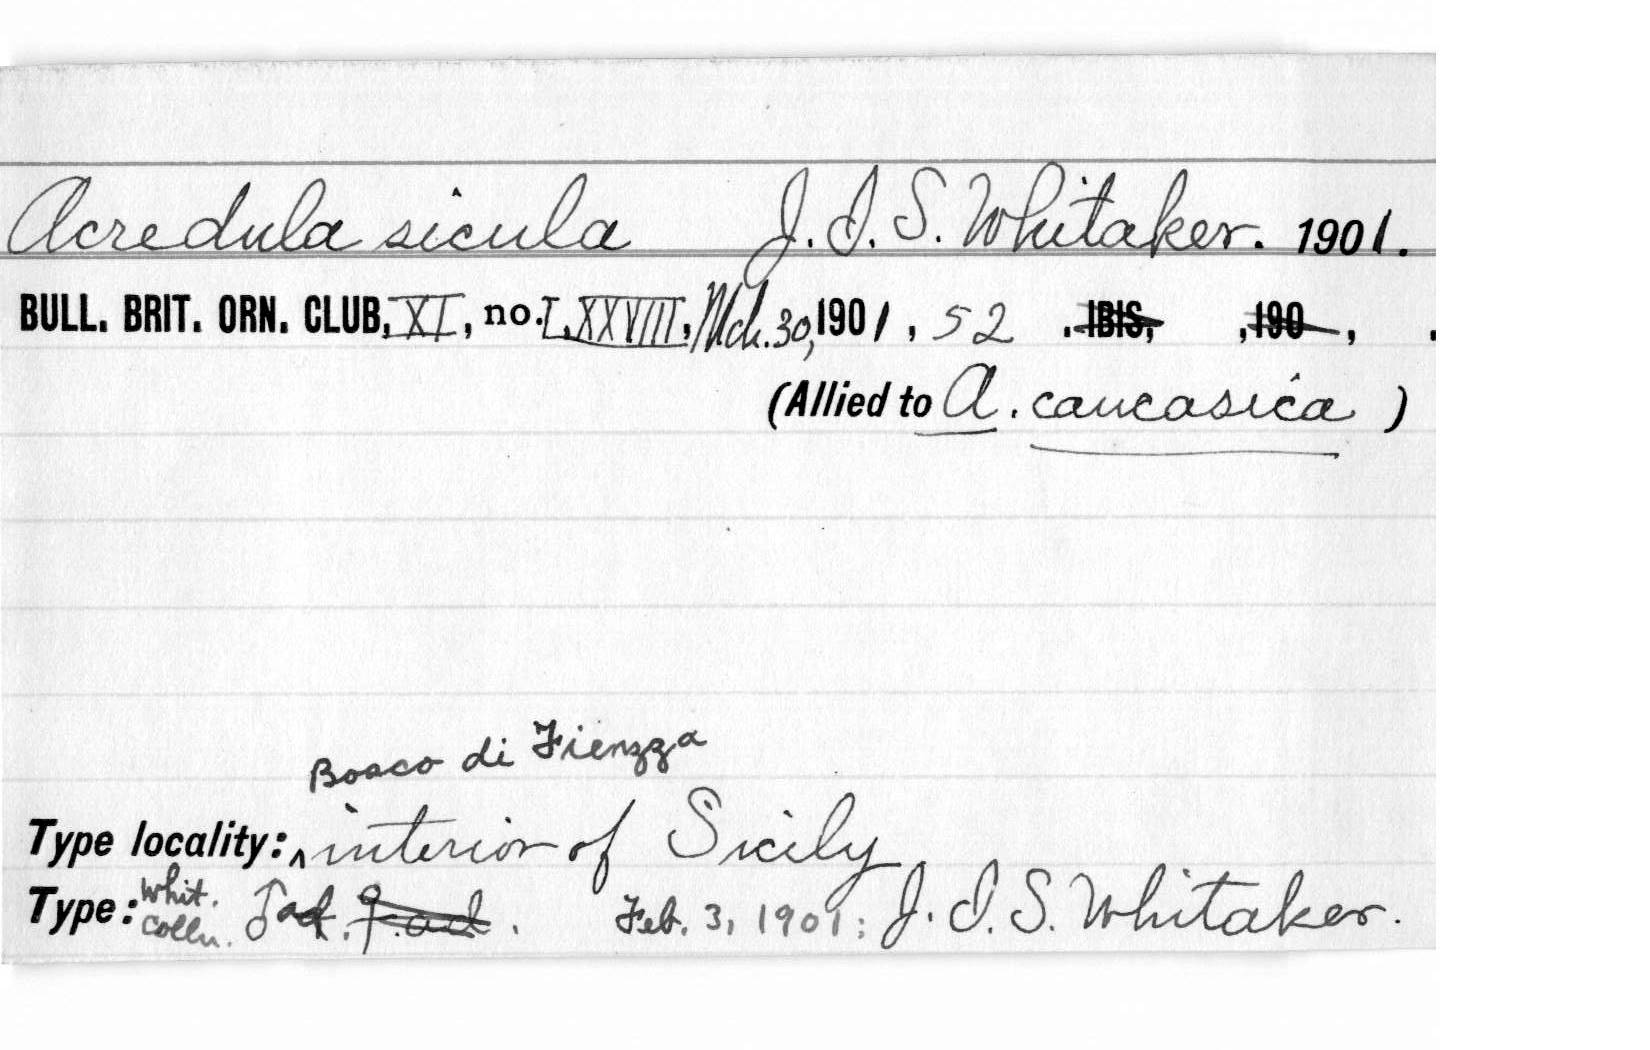 Acredula sicula J. I. S. Whitaker. 1901.
BULL. BRIT. ORN. CLUB, XI, no. LXXVIII, Mch. 30, 1901, 52 . IBIS, ,190 , .
(Allied to A. caucasica )
Bosco di Fienzza
Type locality: ^ interior of Sicily
Type: Whit. Colln. ♂ ad. ♀ ad. Feb. 3, 1901; J. I. S. Whitaker.